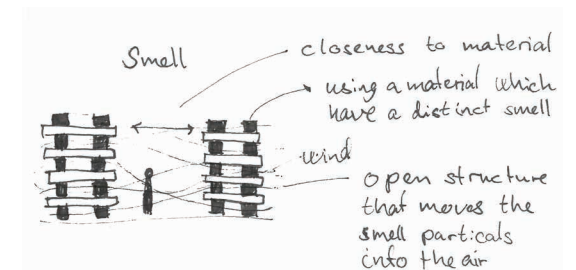 Smell
closeness to material
using a material which
have a distinct smell
wind
open structure
that moves the
smell particals
into the air